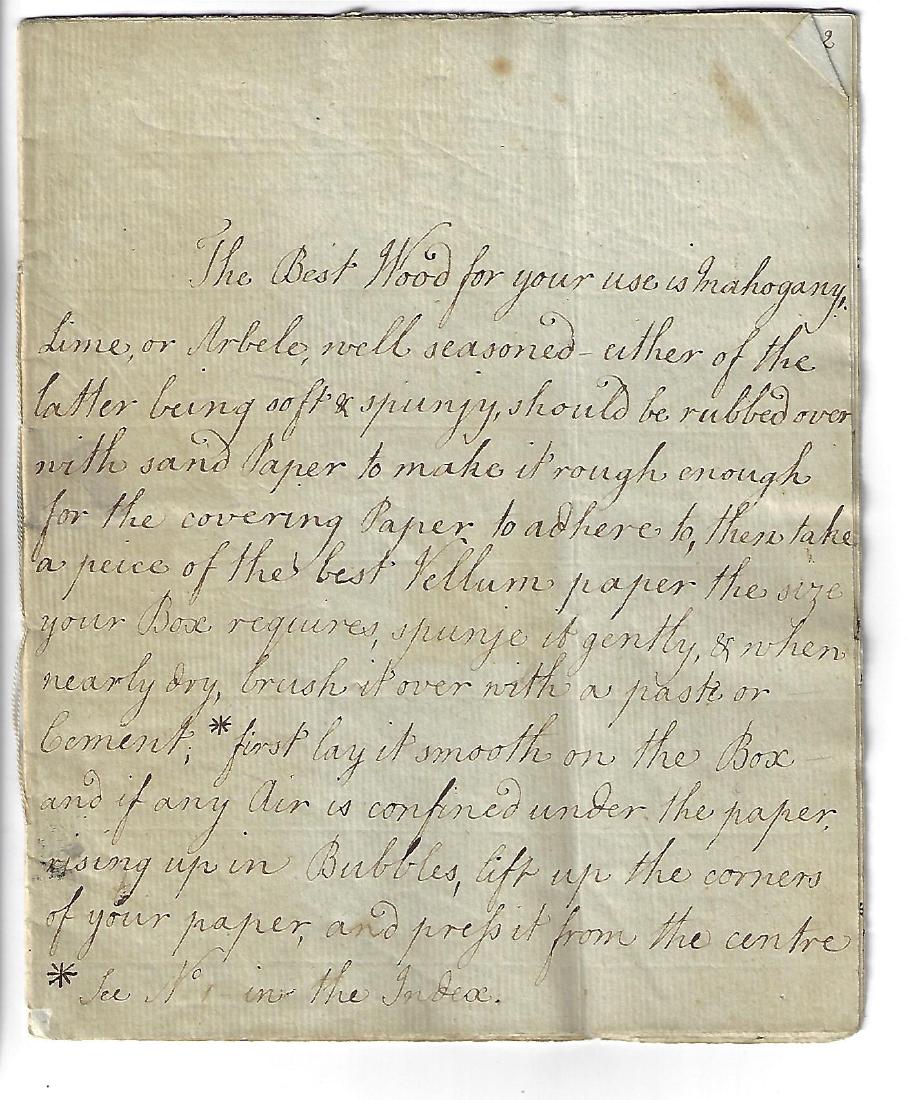 2
The Best Wood for your use is Mahogany,
Lime, or Arbele, well seasoned - either of the
latter being soft & spunjy, should be rubbed over
with sand Paper to make it rough enough
for the covering Paper to adhere to, then take
a peice of the best Vellum paper the size
your Box requires, spunje it gently, & when
nearly dry, brush it over with a paste or
Cement; * first lay it smooth on the Box -
and if any Air is confined under the paper,
rising up in Bubbles, lift up the corners
of your paper, and press it from the centre
* See No. 1 in the Index.